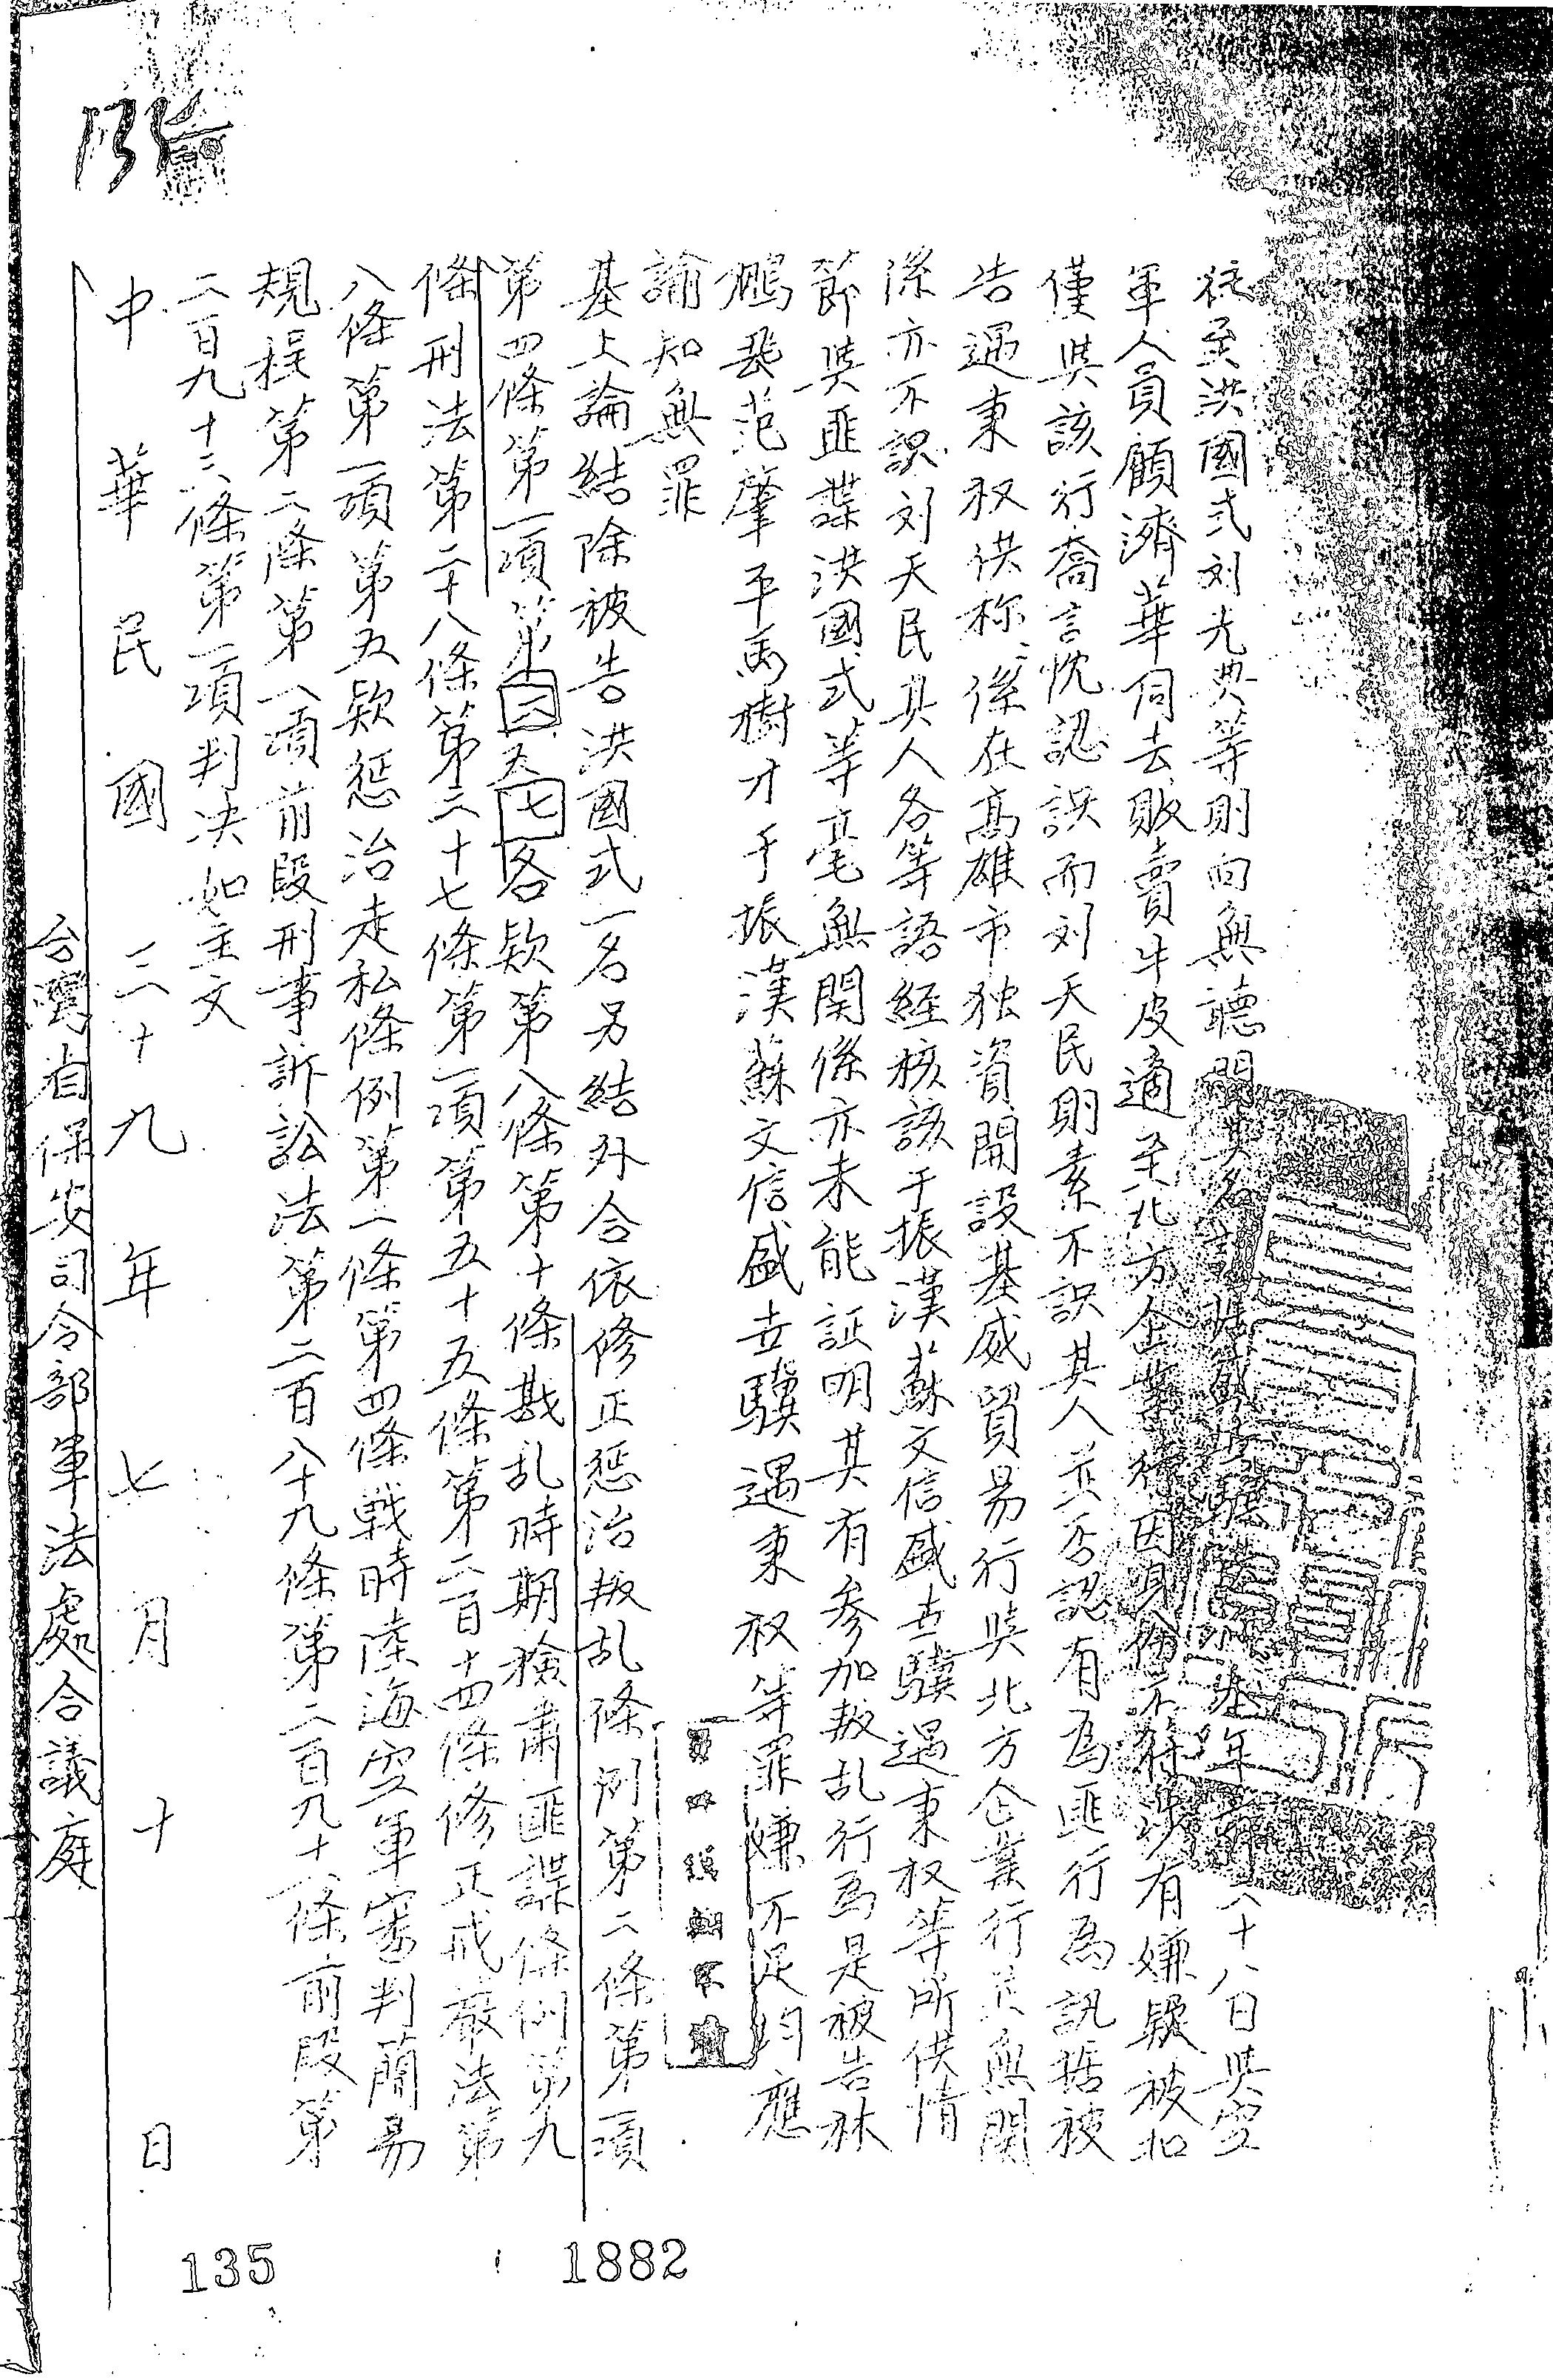 秘至洪國式刘光典等則向無聽聞其名訊據盛世驥供年六十八日與空
軍人員顧濟華伺去敗賣牛皮適至北方企業行因身份不符涉有嫌疑被扣
僅與該行喬言忱認識而刘天民則素不識其人並否認有為匪行為訊据被
告遇秉权供称係在高雄市独資開設基威貿易行與北方企業行並無関
係亦不識刘天民其人各等語経核該于振漢蘇文信盛世驥遇秉权等所供情
節與匪諜洪國式等毫無関係亦未能証明其有参加叛乱行為是被告林
鵬飛范肇平禹樹才于振漢蘇文信盛世驥遇秉权等罪嫌不足均應
諭知無罪
基上論結除被告洪國式一名另結外合依修正惩治叛乱條例第二條第一項
第四條第一項第三五七各款第八條第十條戡乱時期檢肅匪諜條例第九
條刑法第二十八條第三十七條第一項第五十五條第二百十四條修正戒厳法第
八條第一項第五款惩治走私條例第一條第四條戰時陸海空軍審判簡易
規程第二條第八項前段刑事訴訟法第二百八十九條第二百九十一條前段第
二百九十三條第一項判决如主文
中華民國三十九年七月十日
台灣省保安司令部軍法處合議庭
135
1882